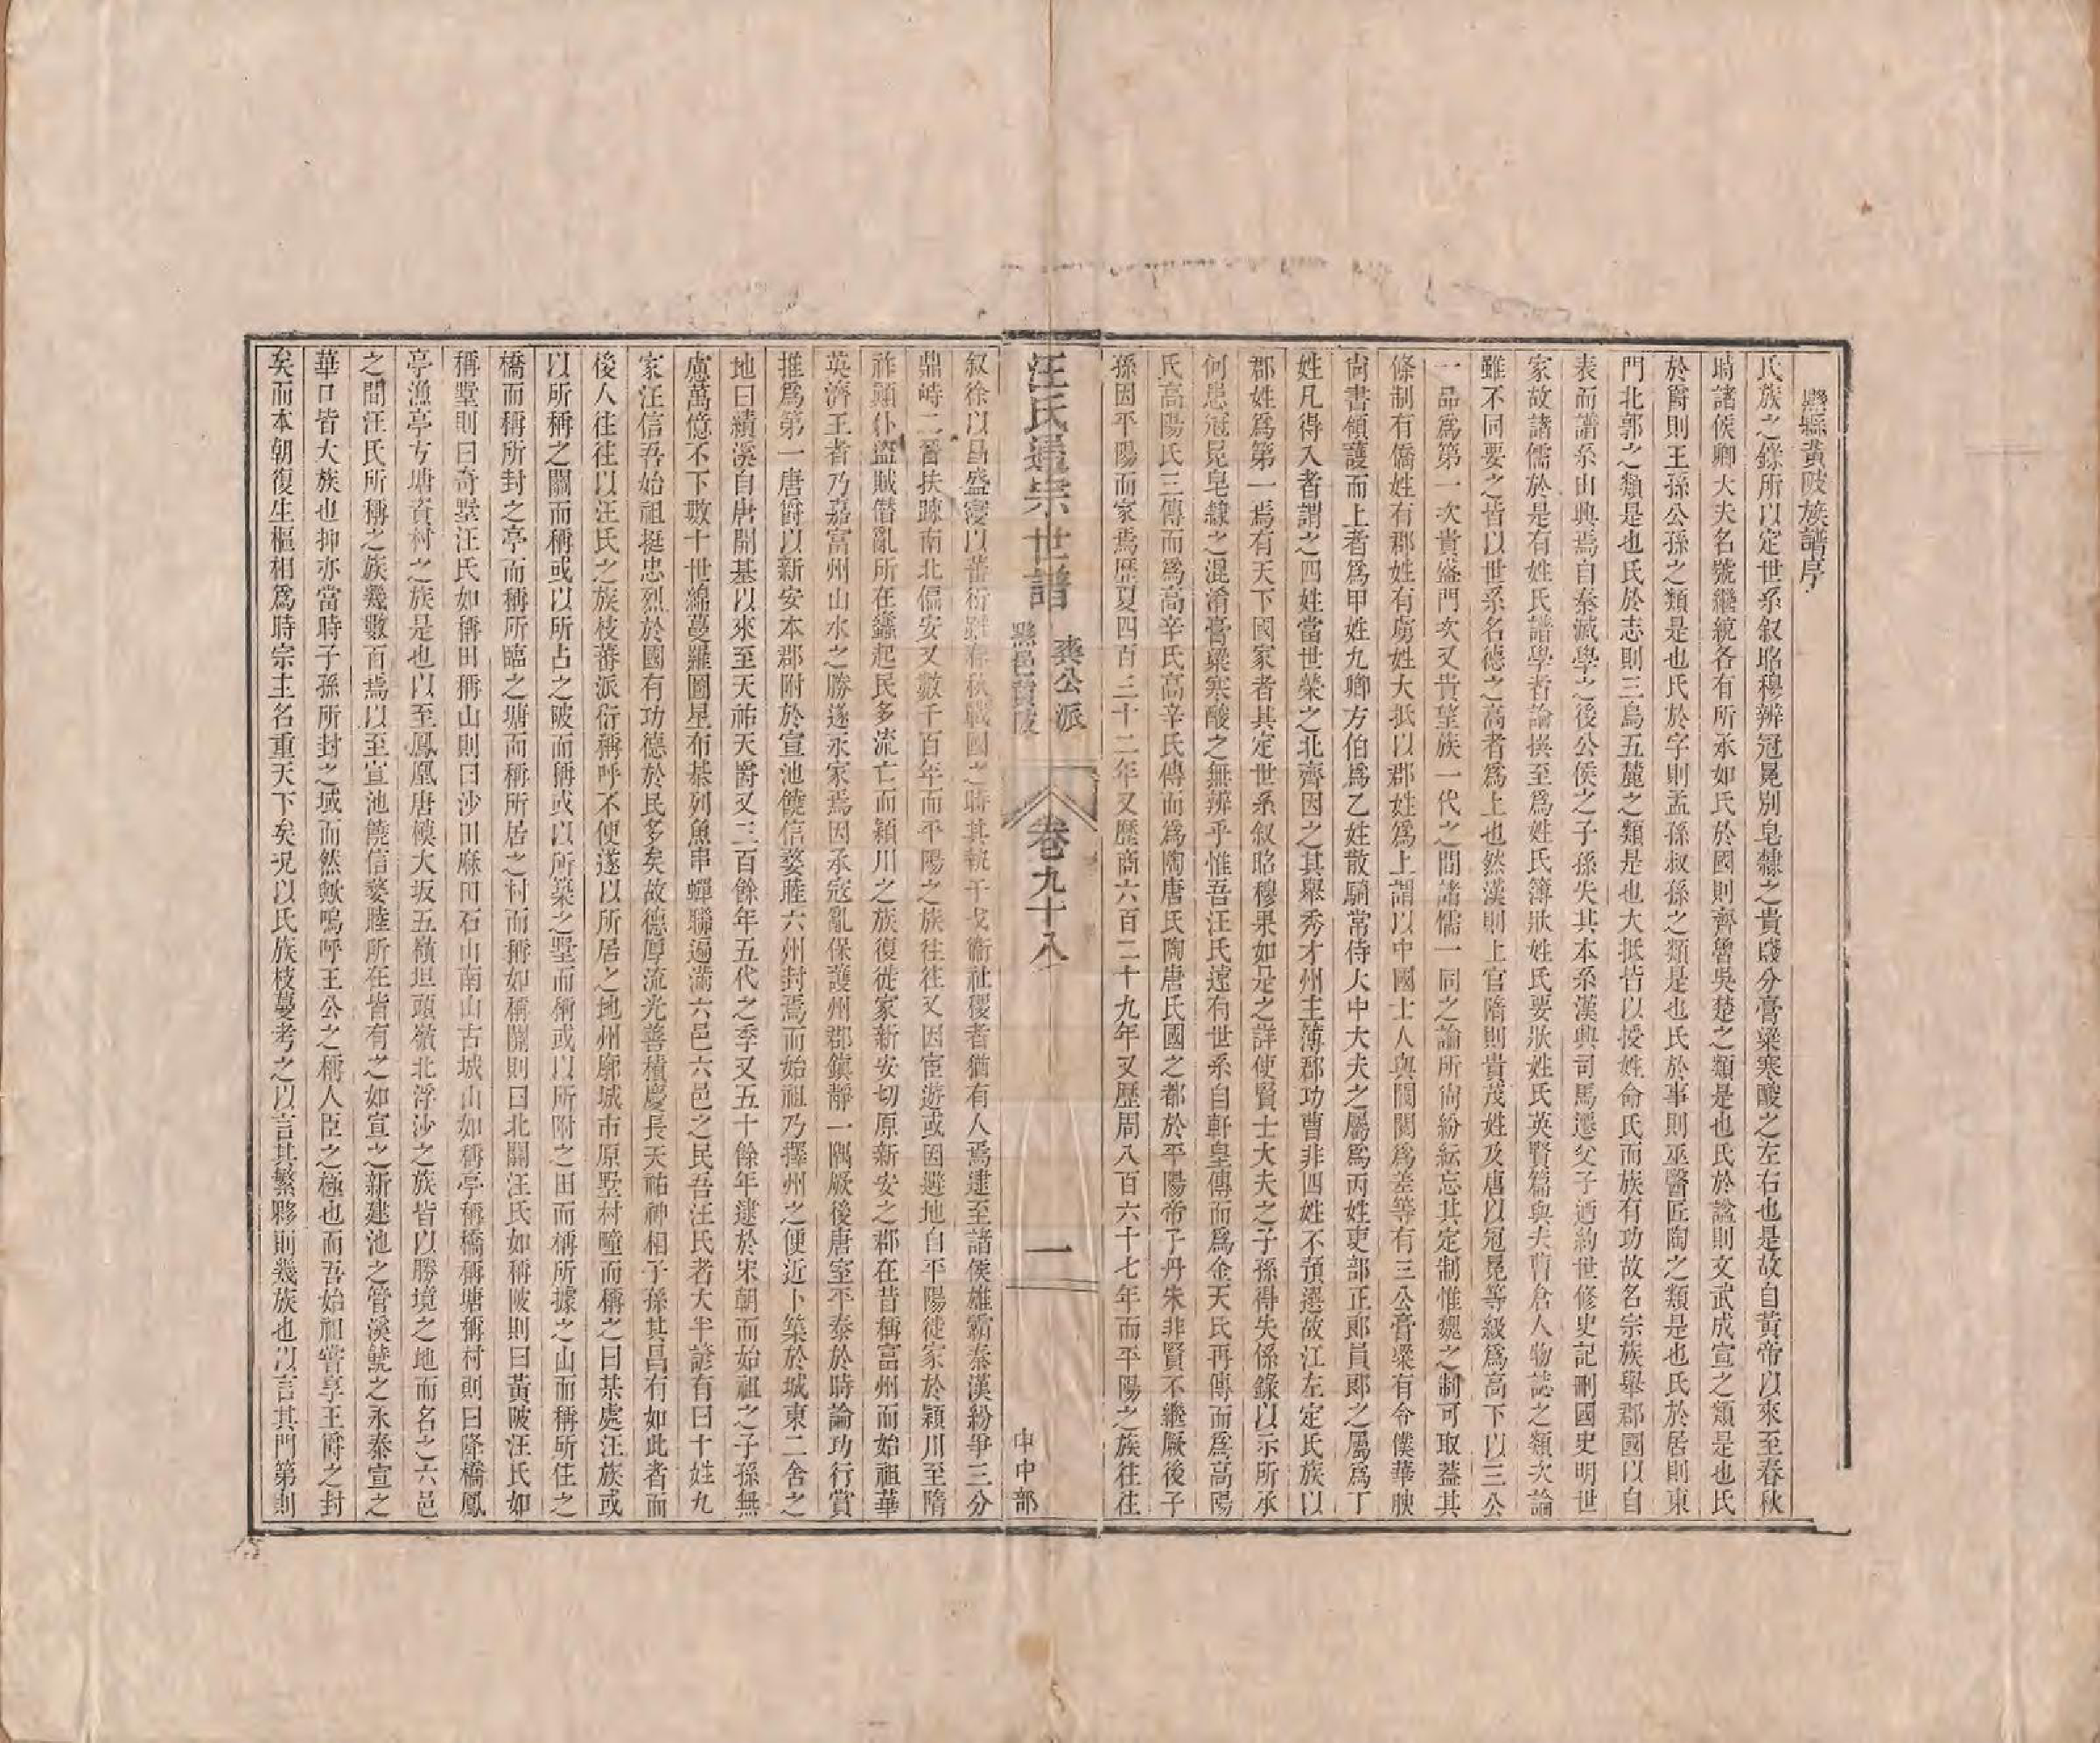 黟縣黃陂族譜序
氏族之錄所以定世系叙昭穆辨冠冕別皂隸之貴賤分膏粱寒酸之左右也是故自黃帝以來至春秋
時諸侯卿大夫名號繼統各有所承如氏於國則齊魯吳楚之類是也氏於諡則文武成宣之類是也氏
於爵則王孫公孫之類是也氏於字則孟孫叔孫之類是也氏於事則巫醫匠陶之類是也氏於居則東
門北郭之類是也氏於志則三烏五麓之類是也大抵皆以授姓命氏而族有功故名宗族舉郡國以自
表而譜系由興焉自秦滅學之後公侯之子孫失其本系漢興司馬遷父子廼約世修史記刪國史明世
家故諸儒於是有姓氏譜學者論撰至爲姓氏簿狀姓氏要狀姓氏英賢篇與夫曹倉人物誌之類次論
雖不同要之皆以世系名德之高者爲上也然漢則上官隋則貴茂姓及唐以冠冕等級爲高下以三公
一品爲第一次貴盛門次又貴望族一代之間諸儒一同之論所尙紛紜忘其定制惟魏之制可取蓋其
條制有僑姓有郡姓有虜姓大抵以郡姓爲上謂以中國士人與閥閱爲差等有三公膏粱有令僕華腴
尙書領護而上者爲甲姓九卿方伯爲乙姓散騎常侍大中大夫之屬爲丙姓吏部正郎員郎之屬爲丁
姓凡得入者謂之四姓當世榮之北齊因之其舉秀才州主薄郡功曹非四姓不預選故江左定氏族以
郡姓爲第一焉有天下國家者其定世系叙昭穆果如是之詳使賢士大夫之子孫得失係錄以示所承
何患冠冕皂隸之混淆膏粱寒酸之無辨乎惟吾汪氏遠有世系自軒皇傳而爲金天氏再傳而爲高陽
氏高陽氏三傳而爲高辛氏高辛氏傳而爲陶唐氏陶唐氏國之都於平陽帝子丹朱非賢不繼厥後子
孫因平陽而家焉歷夏四百三十二年又歷商六百二十九年又歷周八百六十七年而平陽之族往往
汪氏通宗世譜 爽公派 黟邑黃陂 卷九十八 一 申中部
叙徐以昌盛寖以蕃衍雖春秋戰國之時其執干戈衞社稷者猶有人焉逮至諸侯雄霸秦漢紛爭三分
鼎峙二晉扶踈南北偏安又數千百年而平陽之族往往又因宦遊或因避地自平陽徙家於穎川至隋
祚顚仆盜賊僭亂所在蠭起民多流亡而穎川之族復徙家新安切原新安之郡在昔稱富州而始祖華
英濟王者乃嘉富州山水之勝遂永家焉因承寇亂保護州郡鎮靜一隅厥後唐室平泰於時論功行賞
推爲第一唐爵以新安本郡附於宣池饒信婺睦六州封焉而始祖乃擇州之便近卜築於城東二舍之
地曰績溪自唐開基以來至天祐天爵又三百餘年五代之季又五十餘年逮於宋朝而始祖之子孫無
慮萬億不下數十世綿蔓羅圖星布棊列魚串蟬聯遍滿六邑六邑之民吾汪氏者大半諺有曰十姓九
家汪信吾始祖挺忠烈於國有功德於民多矣故德厚流光善積慶長天祐神相子孫其昌有如此者而
後人往往以汪氏之族枝蕃派衍稱呼不便遂以所居之地州廓城市原墅村疃而稱之曰某處汪族或
以所稱之關而稱或以所占之陂而稱或以所築之墅而稱或以所附之田而稱所據之山而稱所住之
橋而稱所封之亭而稱所臨之塘而稱所居之村而稱如稱關則曰北關汪氏如稱陂則曰黃陂汪氏如
稱墅則曰奇墅汪氏如稱田稱山則曰沙田麻田石山南山古城山如稱亭稱橋稱塘稱村則曰隆橋鳳
亭漁亭方塘資村之族是也以至鳳凰唐模大坂五嶺坦頭嶺北浮沙之族皆以勝境之地而名之六邑
之間汪氏所稱之族幾數百焉以至宣池饒信婺睦所在皆有之如宣之新建池之管溪饒之永泰宣之
華口皆大族也抑亦當時子孫所封之域而然歟嗚呼王公之稱人臣之極也而吾始祖嘗享王爵之封
矣而本朝復生樞相爲時宗主名重天下矣况以氏族枝蔓考之以言其繁夥則幾族也以言其門第則